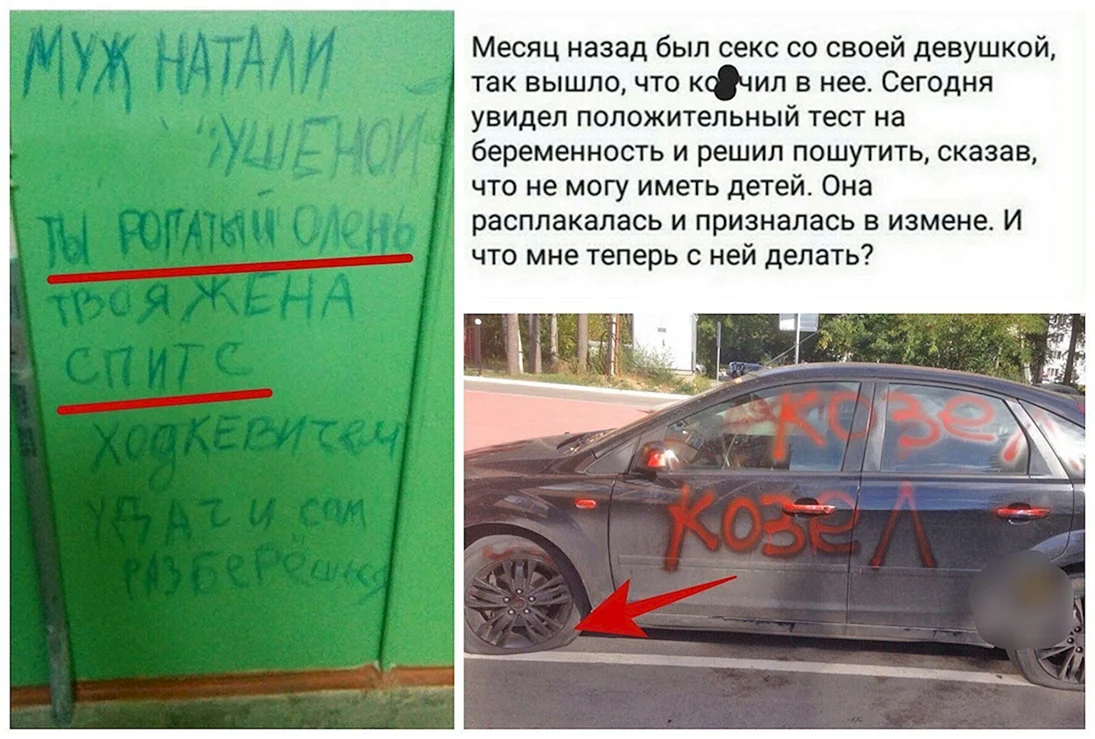 МУЖ НАТАЛИ
"УШЕНОЙ"
ТЫ РОГАТЫЙ ОЛЕНЬ
ТВОЯ ЖЕНА
СПИТ С
ХОДКЕВИЧЕМ
УДАЧИ сам
РАЗБЕРЁШЬСЯ
Месяц назад был секс со своей девушкой,
так вышло, что ко чил в нее. Сегодня
увидел положительный тест на
беременность и решил пошутить, сказав,
что не могу иметь детей. Она
расплакалась и призналась в измене. И
что мне теперь с ней делать?
КОЗЕЛ
КОЗЕЛ